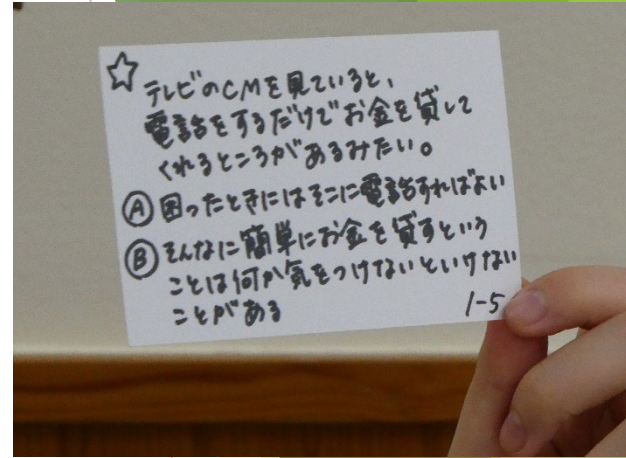 ☆ テレビのCMを見ていると、
電話をするだけでお金を貸して
くれるところがあるみたい。
Ⓐ 困ったときにはそこに電話すればよい
Ⓑ そんなに簡単にお金を貸すという
ことは何か気をつけないといけない
ことがある
1-5